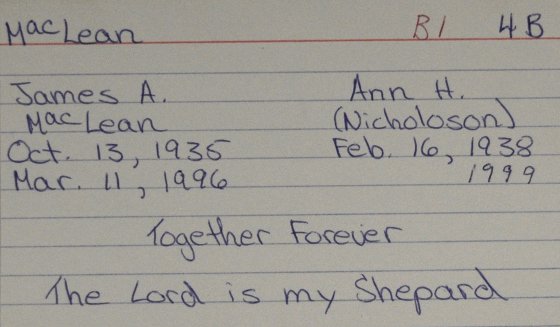 MacLean B1 4B
James A. Ann H.
MacLean (Nicholoson)
Oct. 13, 1935 Feb. 16, 1938
Mar. 11, 1996 1999
Together Forever
The Lord is my Shepard